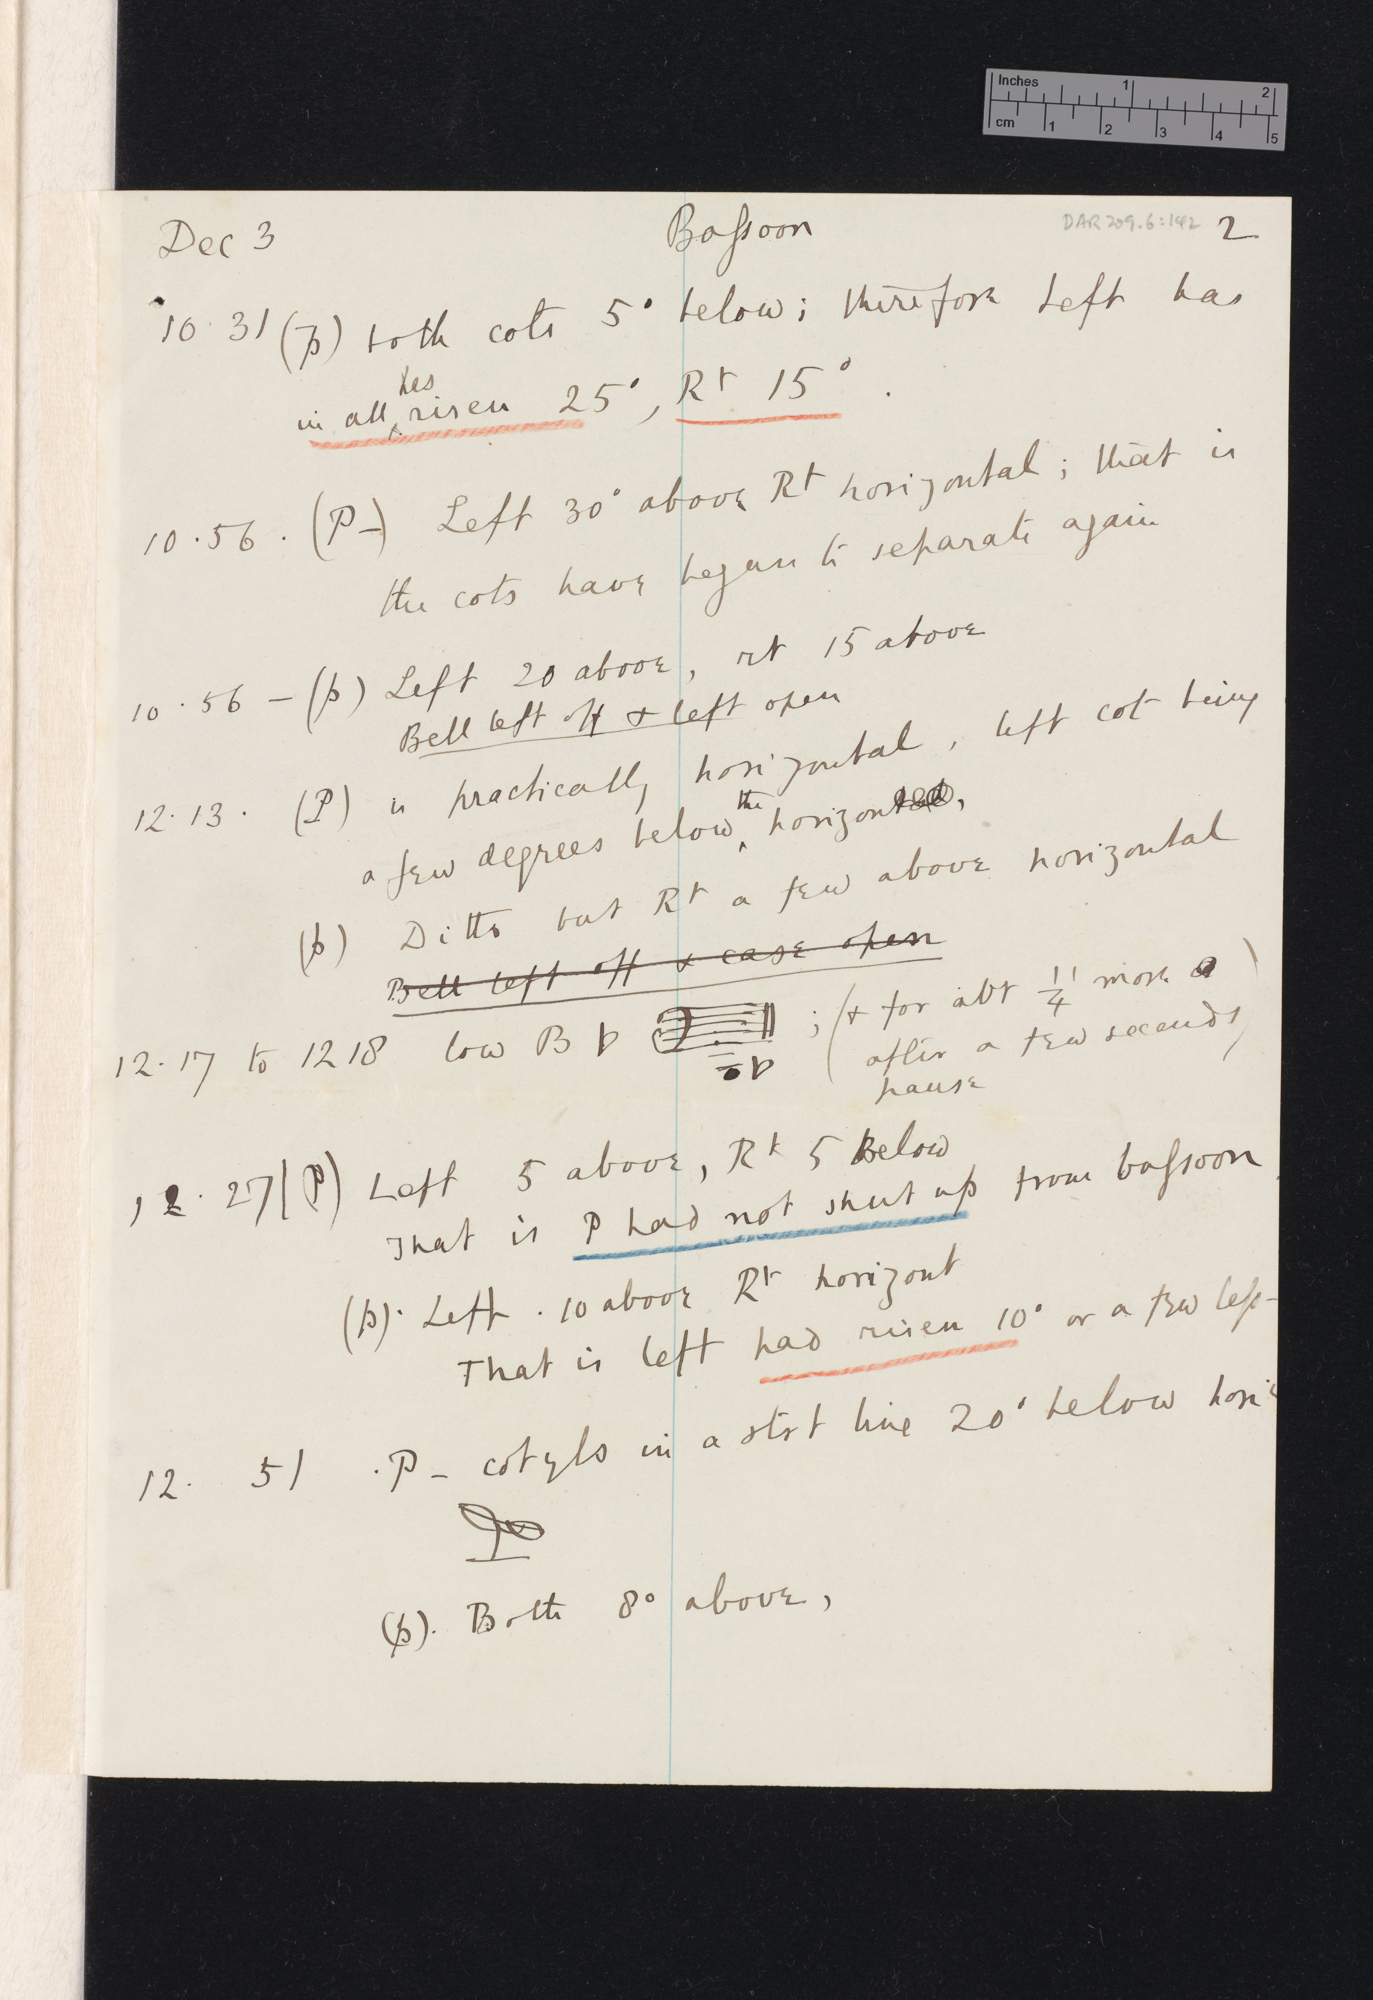 Inches 1 2
cm 1 2 3 4 5
Dec 3 Bassoon DAR 209.6:142 2
10.31 (p) both cots 5° below; therefore Left has
has
in all risen 25°, Rt 15°.
10.56. (P–) Left 30° above Rt horizontal; that is
the cots have begun to separate again
10.56 – (p) Left 20 above, rt 15 above
Bell left off & left open
12.13. (P) is practically horizontal, left cot being
a few degrees below the horizontal,
(p) Ditto but Rt a few above horizontal
Bell left off & case open
12.17 to 12 18 low B♭ ♭ ; (& for abt 1/4' more
after a few seconds)
pause
12.27 (P) Left 5 above, Rt 5 Below
That is P had not shut up from bassoon.
(p). Left . 10 above Rt horizont
That is left had risen 10° or a few less–
12. 51 . P – cotyls in a strt line 20° below hori
(p). Both 8° above,